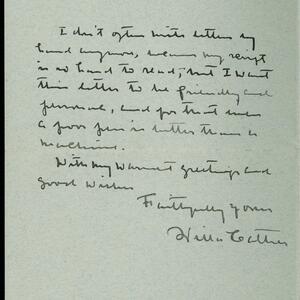 I don't often write letters by
hand anymore, because my script
is so hard to read, but I want
this letter to be friendly and
personal, and for that use
a poor pen is better than a
machine.
With my warmest greetings and
good wishes
Faithfully yours
Willa Cather